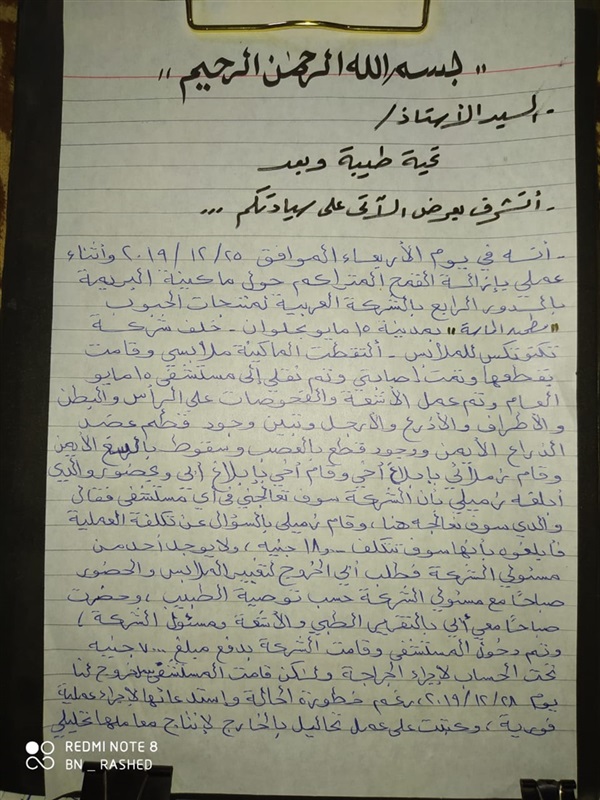 "بسم الله الرحمن الرحيم"
- السيد الأستاذ /
تحية طيبة وبعد
- أتشرف بعرض الآتى على سيادتكم ...
- أنه في يوم الأربعاء الموافق ٢٥ / ١٢ / ٢٠١٩ وأثناء
عملي بإزالة القمح المتراكم حول ماكينة البريمة
بالدور الرابع بالشركة العربية لمنتجات الحبوب
" بمدينة ١٥ مايو بحلوان - خلف شركة
تكنوتكس للملابس - ألتقطت الماكينة ملابسي وقامت
بقطعها وتمت إصابتي وتم نقلي إلى مستشفى ١٥ مايو
العام وتم عمل الأشعة والفحوصات على الرأس والبطن
والأطراف والأذرع والأرجل وتبين وجود قطم عضد
الذراع الأيمن ووجود قطع بالعصب وسقوط بالرسغ الأيمن
وقام زملائي بإبلاغ أخي وقام أخي بإبلاغ أبي وبحضور والدي
أبلغه زميلي بأن الشركة سوف تعالجني في أي مستشفى فقال
والدي سوف نعالجه هنا، وقام زميلي بالسؤال عن تكلفة العملية
فأبلغوه بأنها سوف تتكلف ١٨٠٠٠ جنيه، ولا يوجد أحد من
مسئولي الشركة فطلب أبي الخروج لتغيير الملابس والحضور
صباحًا مع مسئولي الشركة حسب توصية الطبيب، وحضرت
صباحًا معي أبي بالتقرير الطبي والأشعة ومسئول الشركة )
وتم دخول المستشفى وقامت الشركة بدفع مبلغ ٧٠٠٠ جنيه
تحت الحساب لإجراء الجراحة ولكن قامت المستشفى بالخروج لنا
يوم ٢٨ / ١٢ / ٢٠١٩، رغم خطورة الحالة واستدعائها لإجراء عملية
فورية، على عمل تحاليل بالخارج لإنتاج معاملها تحليلي
REDMI NOTE 8
BN _ RASHED